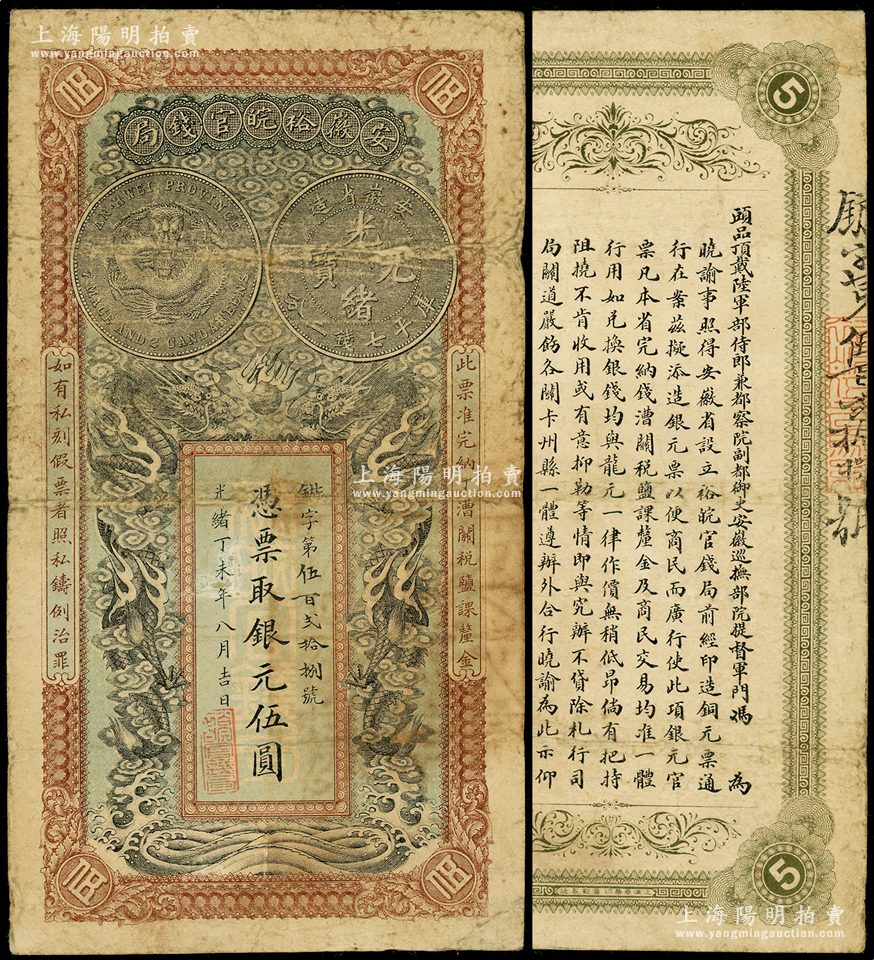 上海陽明拍賣
www.yangmingauction.com
伍
伍
安徽裕皖官錢局
AN-HWEI PROVINCE
7 MACE AND 2 CANDAREENS
安徽省造
光緒元寶
庫平七錢二分
此票准完納錢漕關稅鹽課釐金
如有私刻假票者照私鑄例治罪
鍇字第伍百弍拾捌號
憑票取銀元伍圓
光緒丁未年八月吉日
上海陽明拍賣
www.yangmingauction.com
伍
伍
5
頭品頂戴陸軍部侍郎兼都察院副都御史安徽巡撫部院提督軍門馮 為
曉諭事照得安徽省設立裕皖官錢局前經印造銅元票通
行在案茲擬添造銀元票以便商民而廣行使此項銀元官
票凡本省完納錢漕關稅鹽課釐金及商民交易均准一體
行用如兌換銀錢均與龍元一律作價無稍低昂倘有把持
阻撓不肯收用或有意抑勒等情即與究辦不貸除札行司
局關道嚴飭各關卡州縣一體遵辦外合行曉諭為此示仰
伍百弍拾捌號
5
上海陽明拍賣
www.yangmingauction.com